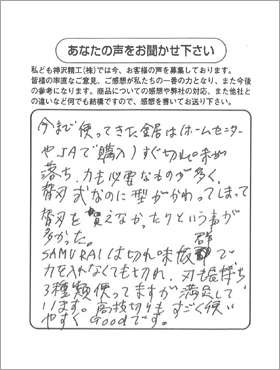 あなたの声をお聞かせ下さい
私ども神沢精工(株)では今、お客様の声を募集しております。
皆様の率直なご意見、ご感想が私たちの一番の力となり、また今後
の参考になります。商品についての感想や弊社の対応、また他社と
の違いなど何でも結構ですので、感想を書いてお送り下さい。
今まで使ってきた鋸は(ホームセンター
やJAで購入)すぐ切れ味が
落ち、力も必要なものが多く、
替刃式なのに型がかわってしまって
替刃を買えなかったりという事が
多かった。
SAMURAIは切れ味抜群で
力を入れなくても切れ、刃も長持ち
3種類使ってますが満足して
います。高枝切りもすごく使い
やすくGoodです。